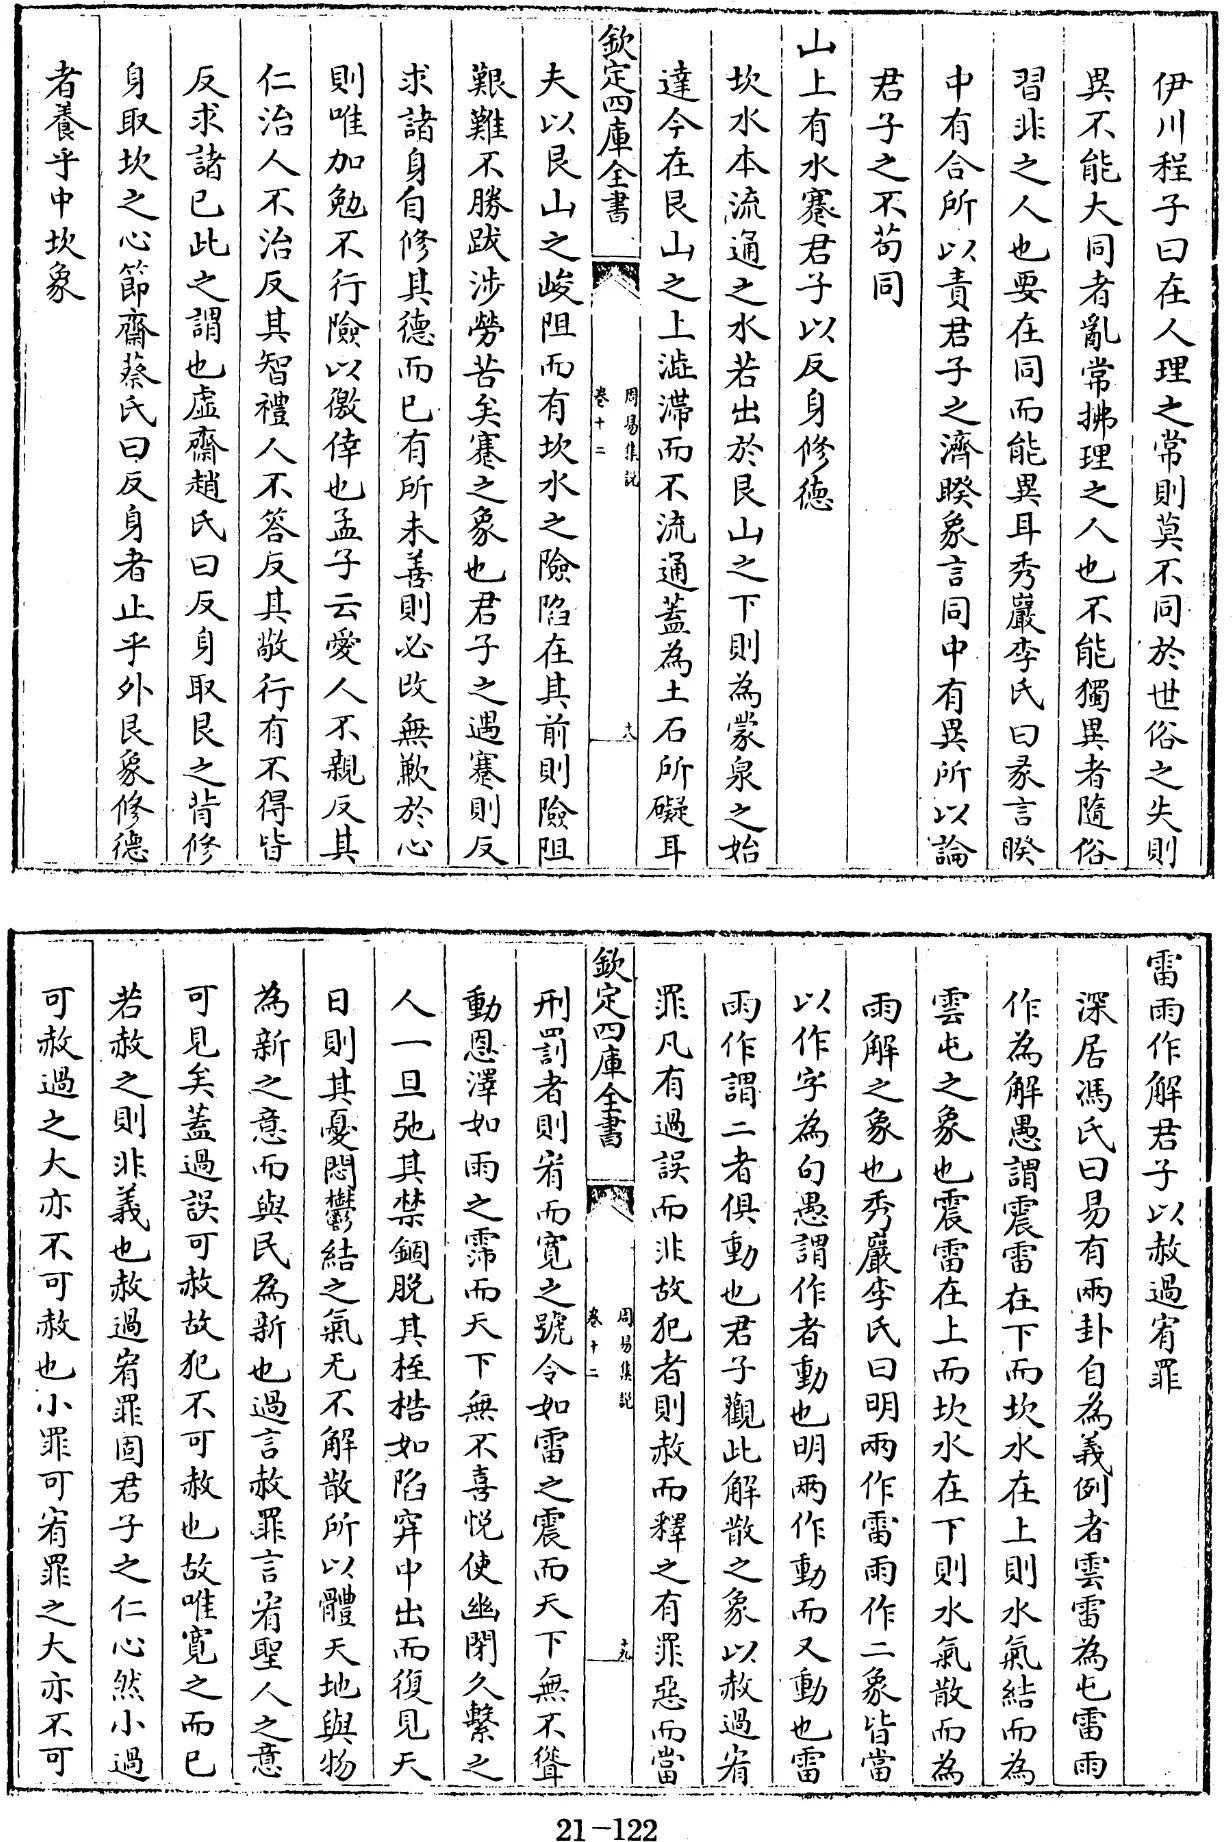 伊川程子曰在人理之常則莫不同於世俗之失則
異不能大同者亂常拂理之人也不能獨異者隨俗
習非之人也要在同而能異耳秀巖李氏曰彖言睽
中有合所以責君子之濟睽象言同中有異所以論
君子之不苟同
山上有水蹇君子以反身修德
坎水本流通之水若出於艮山之下則為蒙泉之始
達今在艮山之上澁滯而不流通蓋為土石所礙耳
欽定四庫全書
周易集説
卷十二
十八
夫以艮山之峻阻而有坎水之險陷在其前則險阻
艱難不勝跋涉勞苦矣蹇之象也君子之遇蹇則反
求諸身自修其德而已有所未善則必改無歉於心
則唯加勉不行險以儌倖也孟子云愛人不親反其
仁治人不治反其智禮人不答反其敬行有不得皆
反求諸已此之謂也虛齋趙氏曰反身取艮之背修
身取坎之心節齋蔡氏曰反身者止乎外艮象修德
者養乎中坎象
雷雨作解君子以赦過宥罪
深居馮氏曰易有兩卦自為義例者雲雷為屯雷雨
作為解愚謂震雷在下而坎水在上則水氣結而為
雲屯之象也震雷在上而坎水在下則水氣散而為
雨解之象也秀巖李氏曰明兩作雷雨作二象皆當
以作字為句愚謂作者動也明兩作動而又動也雷
雨作謂二者俱動也君子觀此解散之象以赦過宥
罪凡有過誤而非故犯者則赦而釋之有罪惡而當
欽定四庫全書
周易集説
卷十二
十九
刑罰者則宥而寬之號令如雷之震而天下無不聳
動恩澤如雨之霈而天下無不喜悅使幽閉久繫之
人一旦弛其禁錮脱其桎梏如陷穽中出而復見天
日則其憂悶鬱結之氣无不解散所以體天地與物
為新之意而與民為新也過言赦罪言宥聖人之意
可見矣蓋過誤可赦故犯不可赦也故唯寬之而已
若赦之則非義也赦過宥罪固君子之仁心然小過
可赦過之大亦不可赦也小罪可宥罪之大亦不可
21-122